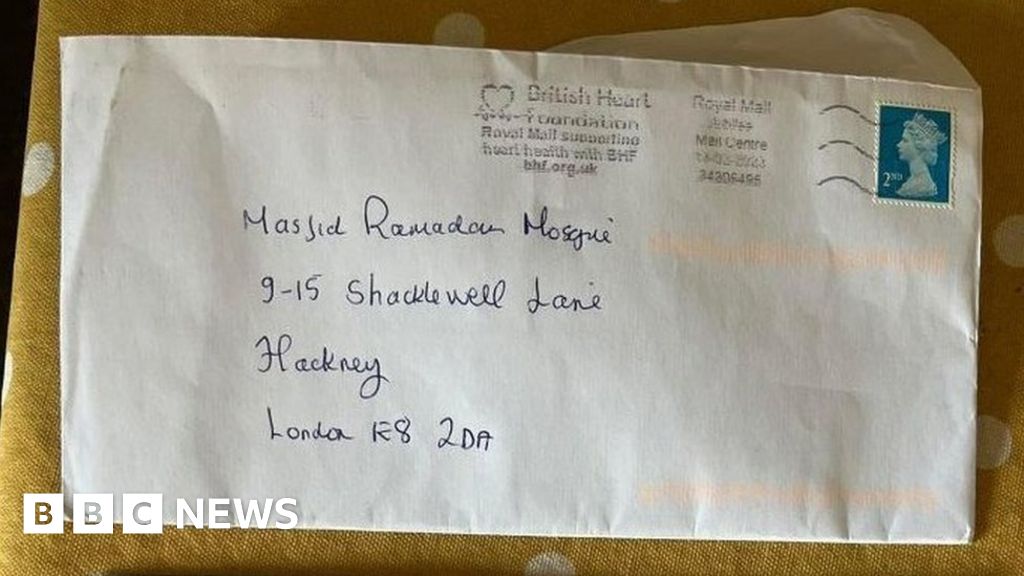 British Heart
Foundation
Royal Mail supporting
heart health with BHF
bhf.org.uk
Royal Mail
Jubilee
Mail Centre
2ND
Masjid Ramadan Mosque
9-15 Shacklewell Lane
Hackney
London E8 2DA
BBC NEWS